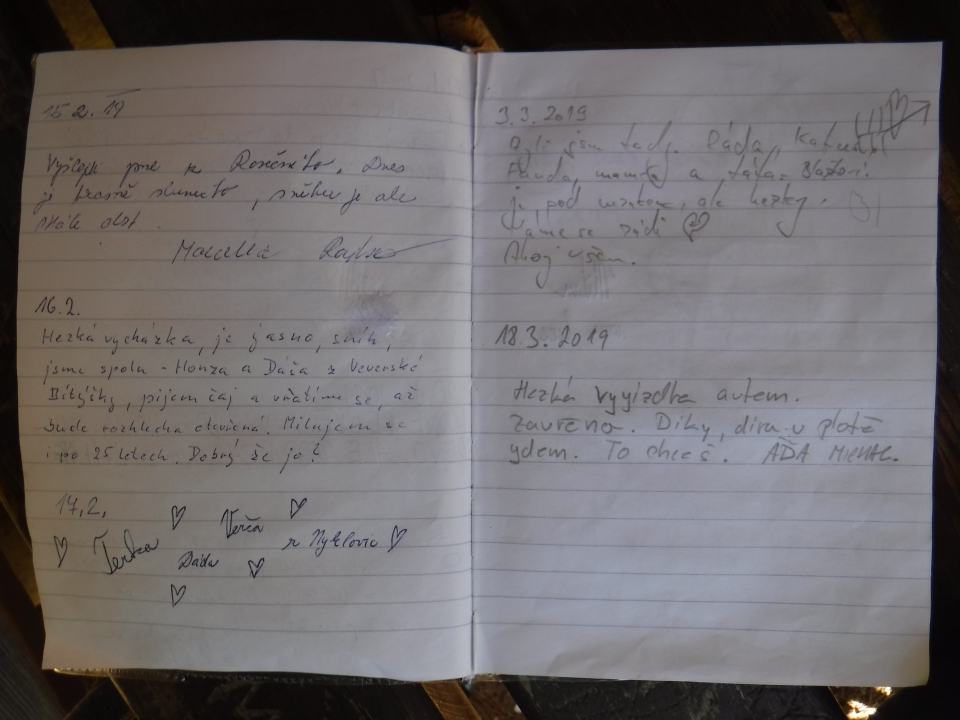 15.2.19
Vyšlapli jsme z Rosičkito. Dnes
je krásné slunečko, sněhu je ale
stále dost.
Marcella
16.2.
Hezká vycházka, je jasno, sníh,
jsme spolu - Honza a Dáša z Veverské
Bitýšky, pijem čaj a vrátíme se, až
bude rozhledna otevřená. Milujem se
i po 25 letech. Dobrý že jo?
17.2.
Terka Verča
Dáda z Nyklovic
3.3.2019
Byli jsm tady. Ráda, Katun
Fanda, mamka a táta. Blažkovi.
je pod mrakem, ale hezky.
Máme se rádi
Ahoj všem.
18.3.2019
Hezká vyjízdka autem.
Zavřeno. Díky, díra v plotě
ydem. To chceš. AĎA